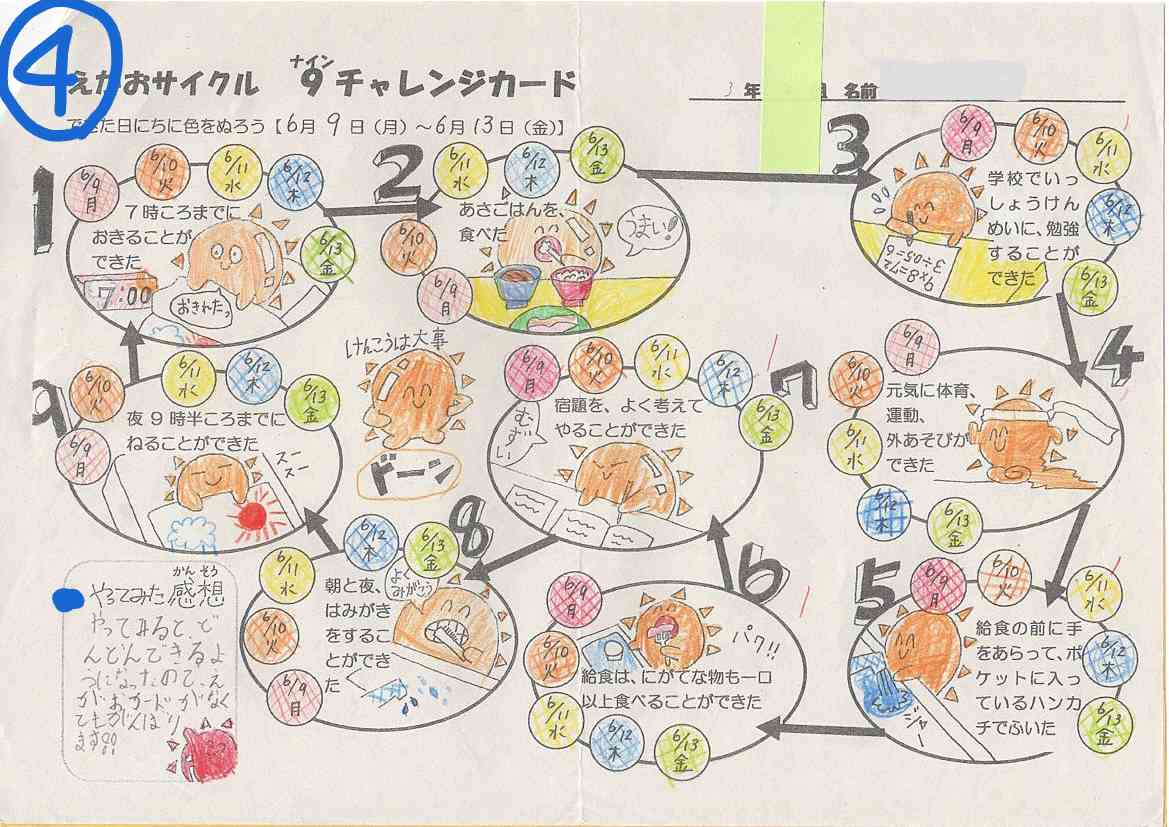 ④
えがおサイクル 9チャレンジカード
ナイン
3年 組 名前
できた日にちに色をぬろう【6月9日(月)~6月13日(金)】
1
6/9 月
6/10 火
6/11 水
6/12 木
6/13 金
7時ころまでに
おきることが
できた
7:00
おきれたっ
2
6/9 月
6/10 火
6/11 水
6/12 木
6/13 金
あさごはんを、
食べた
うまい!!
3
6/9 月
6/10 火
6/11 水
6/12 木
6/13 金
学校でいっ
しょうけん
めいに、勉強
することが
できた
9×8=72
4
6/9 月
6/10 火
6/11 水
6/12 木
6/13 金
元気に体育、
運動、
外あそびが
できた
5
6/9 月
6/10 火
6/11 水
6/12 木
6/13 金
給食の前に手
をあらって、ポ
ケットに入っ
ているハンカ
チでふいた
ジャー
6
6/9 月
6/10 火
6/11 水
6/12 木
6/13 金
パク!!
給食は、にがてな物も一口
以上食べることができた
7
6/9 月
6/10 火
6/11 水
6/12 木
6/13 金
宿題を、よく考えて
やることができた
むずい
8
6/9 月
6/10 火
6/11 水
6/12 木
6/13 金
朝と夜、
はみがき
をするこ
とができ
た
よくみがこう
9
6/9 月
6/10 火
6/11 水
6/12 木
6/13 金
夜9時半ころまでに
ねることができた
スースー
けんこうは大事
ドーン
やってみた感想
かんそう
やってみると、ど
んどんできるよ
うになったので、え
がおカードがなく
てもがんばり
ます!!